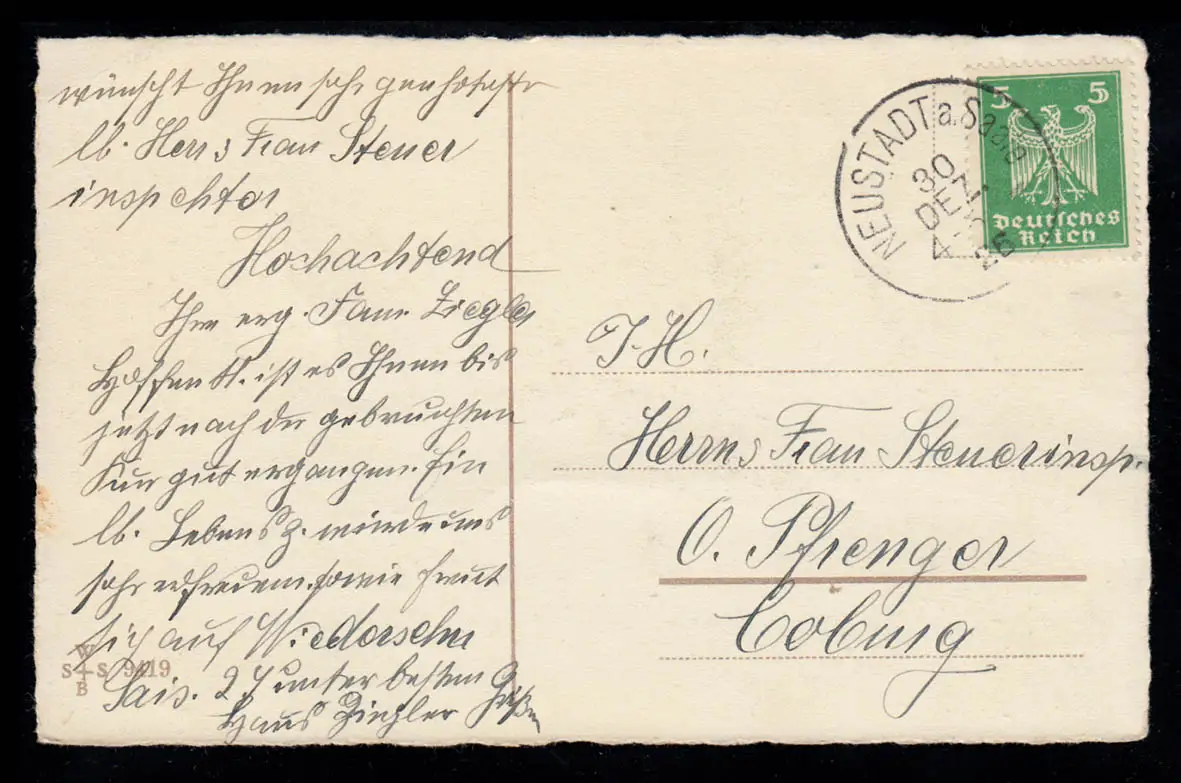 wünscht Ihnen sehr geehrteste
lb. Herr & Frau Steuer
inspektor
Hochachtend
Ihre erg. Fam. Ziegler
Hoffentl. ist es Ihnen bis
jetzt nach der gebrauchten
Kur gut ergangen. Ein
lb. Lebensz. würde uns
sehr erfreuen. sowie freut
sich auf Wiedersehn
Sais. 27 unter besten Grüßen
Haus Ziegler
W
S+S 9419
B
NEUSTADT a. Saale
30
DEZ
4
26
5 5
Deutsches
Reich
I. H.
Herrn & Frau Steuerinsp.
O. Pfrenger
Coburg